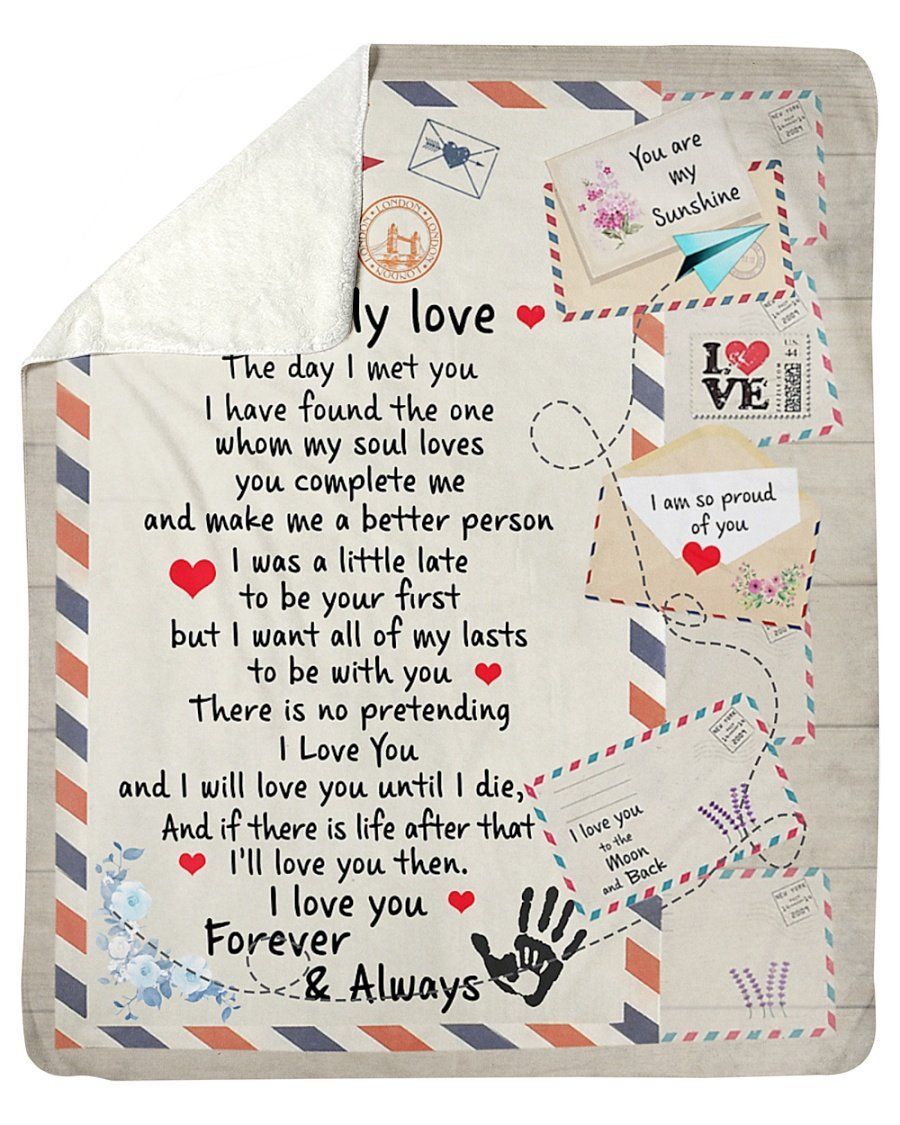 LONDON • LONDON • LONDON • LONDON
ly love
The day I met you
I have found the one
whom my soul loves
you complete me
and make me a better person
I was a little late
to be your first
but I want all of my lasts
to be with you
There is no pretending
I Love You
and I will love you until I die,
And if there is life after that
I'll love you then.
I love you
Forever
& Always
NEW YORK
2009
You are
my
Sunshine
2009
LOVE
U.S.
44
ZAZZLE.COM
I am so proud
of you
NEW YORK
2009
I love you
to the
Moon
and Back
NEW YORK
2009